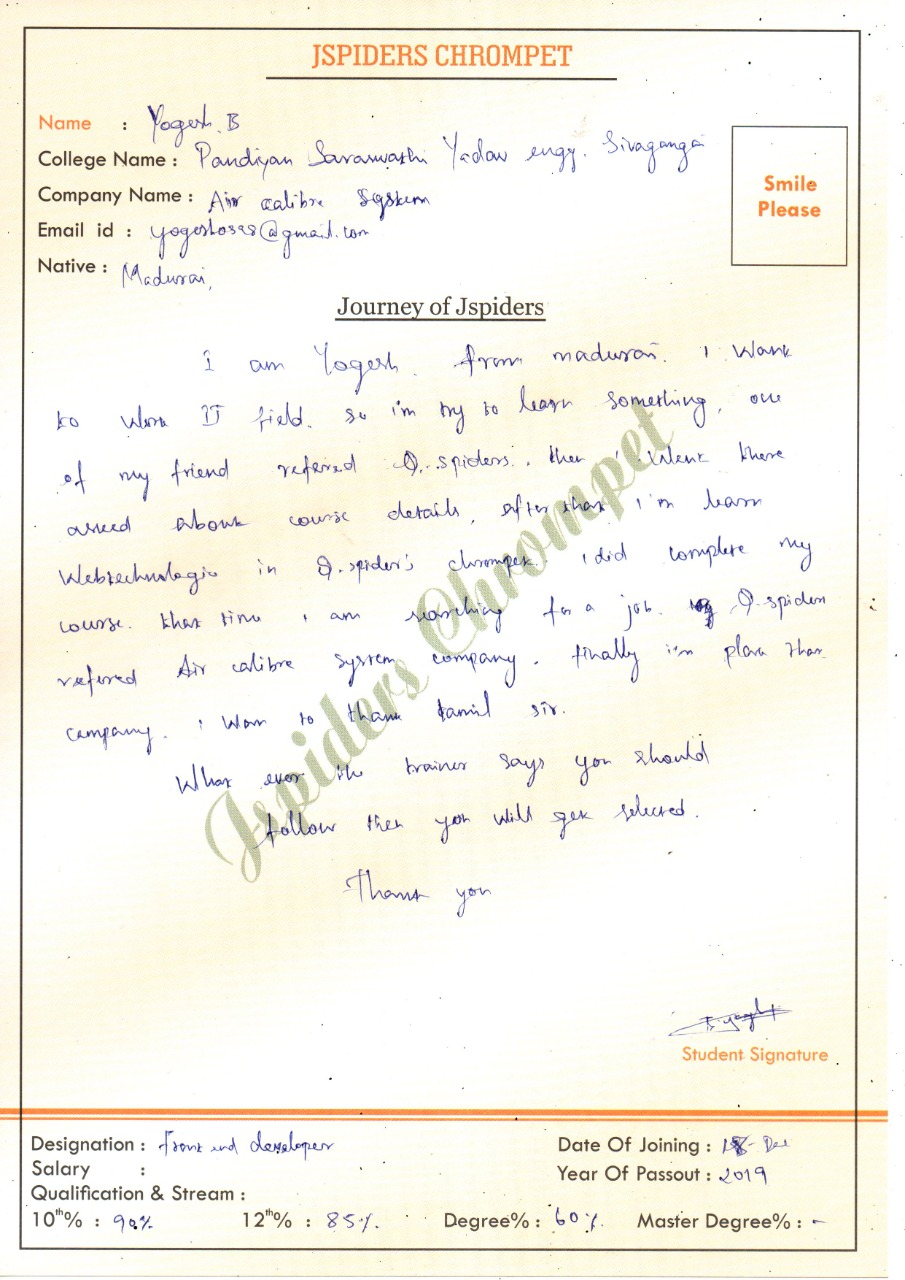 JSPIDERS CHROMPET
Name : Yogesh. B
College Name : Pandiyan Saraswathi Yadav engg. Sivaganga
Smile
Please
Company Name : Air calibre System
Email id : @gmail.com
Native : Madurai,
Journey of Jspiders
I am Yogesh. from madurai. i want
to work IT field. so i'm try to learn something, one
of my friend refered Q.spiders. then i went there
asked about course details, after that i'm learn
Webtechnologie in Q.spider's chrompet. i did complete my
course. that time i am searching for a job. Q.spiders
refered Air calibre system company. finally i'm place that
company. i wan to thank tamil sir.
What ever the trainer says you should
follow then you will get selected.
Thank you
Jspiders Chrompet
Student Signature
Designation : front end developer
Date Of Joining : Dec
Salary :
Year Of Passout : 2019
Qualification & Stream :
10th% : 90% 12th% : 85%. Degree% : 60% Master Degree% : -